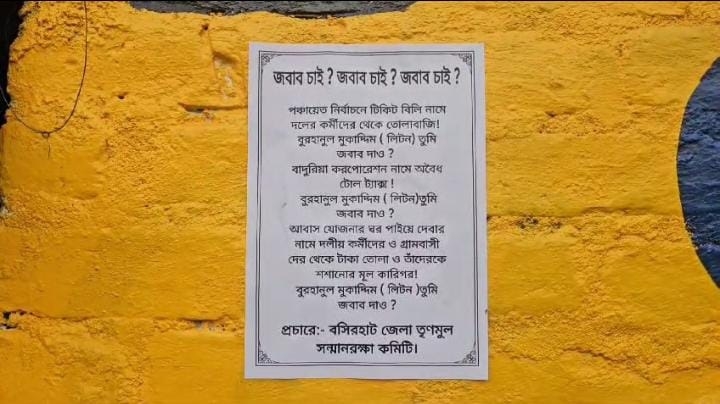 জবাব চাই ? জবাব চাই ? জবাব চাই ?
পঞ্চায়েত নির্বাচনে টিকিট বিলি নামে
দলের কর্মীদের থেকে তোলাবাজি!
বুরহানুল মুকাদ্দিম ( লিটন) তুমি
জবাব দাও ?
বাদুরিয়া করপোরেশন নামে অবৈধ
টোল ট্যাক্স !
বুরহানুল মুকাদ্দিম ( লিটন)তুমি
জবাব দাও ?
আবাস যোজনার ঘর পাইয়ে দেবার
নামে দলীয় কর্মীদের ও গ্রামবাসী
দের থেকে টাকা তোলা ও তাঁদেরকে
শশানোর মূল কারিগর!
বুরহানুল মুকাদ্দিম ( লিটন )তুমি
জবাব দাও ?
প্রচারে:- বসিরহাট জেলা তৃণমুল
সন্মানরক্ষা কমিটি।